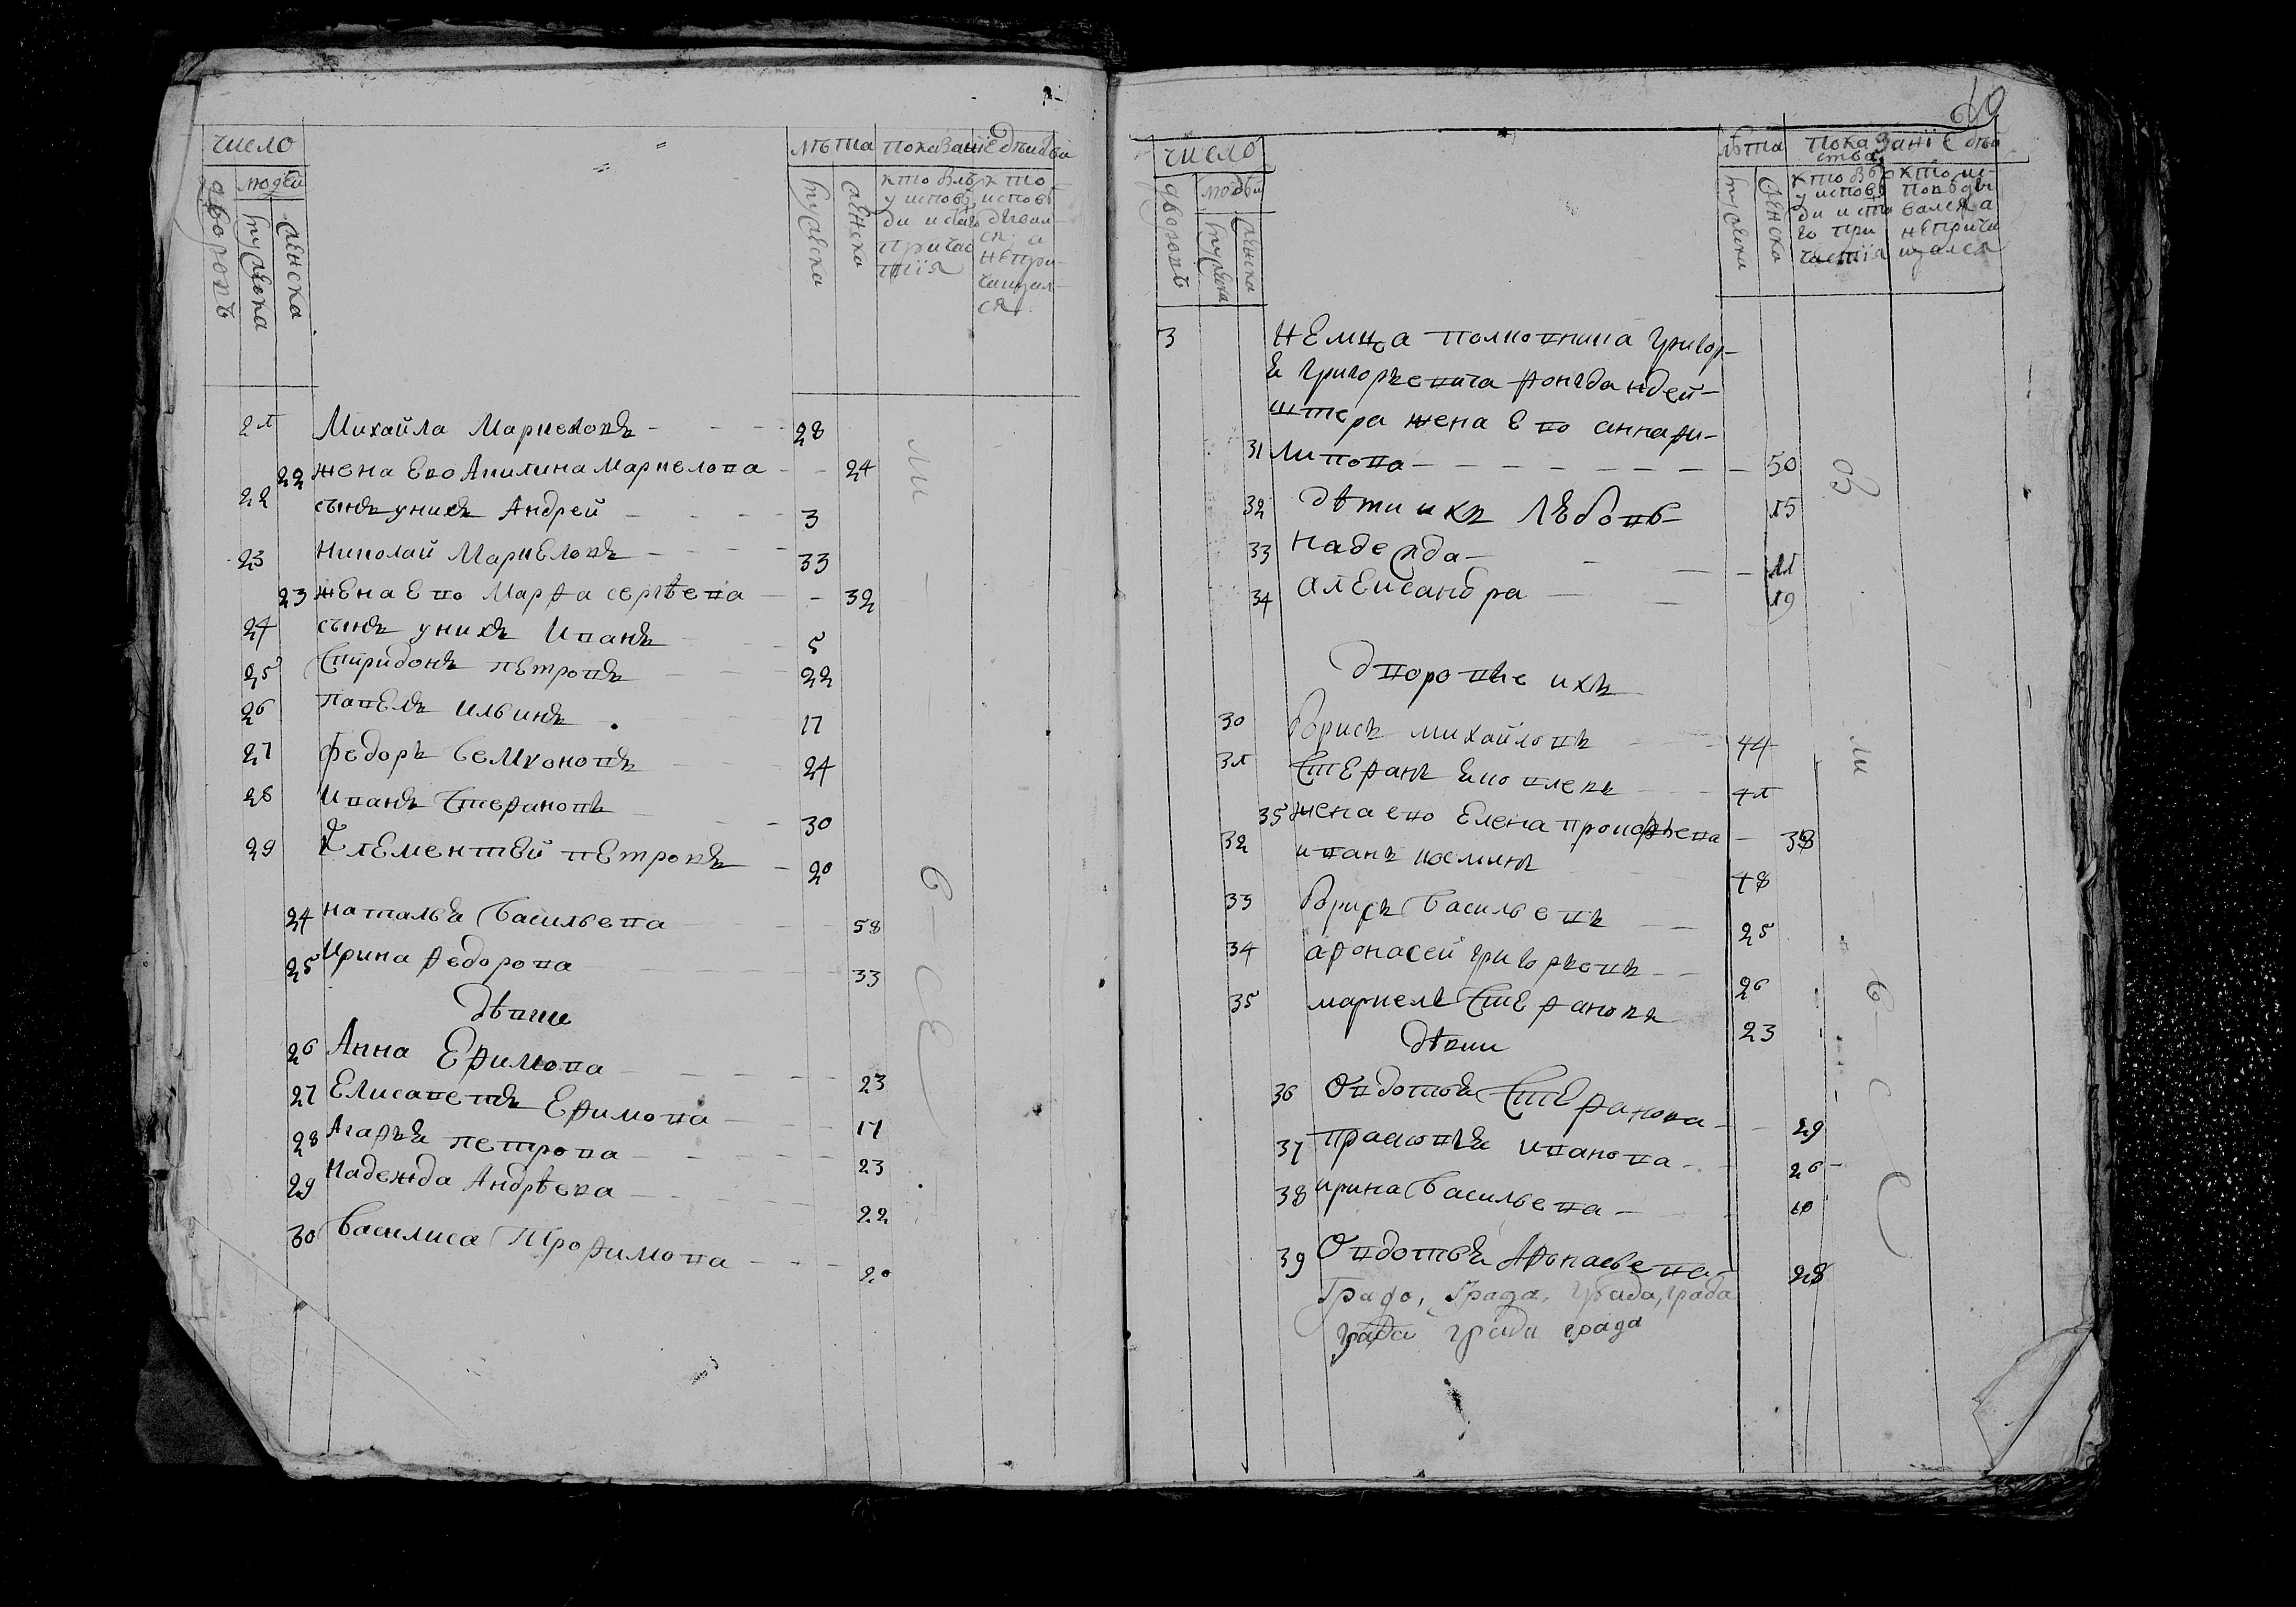 число
людей
дворовъ
мужеска
женска
лѣта
показаніе действа
мужеска
женска
кто былъ
у исповѣ
ди и свят
причас
тия
кто
исповѣ
дывал
ся, а
непри-
чащал-
ся
21 Михайла Маркеловъ 28
22 жена Ево Акилина Маркелова 24
22 сынъ унихъ Андрей 3
23 Николай Маркеловъ 33
23 жена Ево Марфа сергѣева 32
24 сынъ унихъ Иванъ 5
25 Спиридонъ петровъ 22
26 павелъ ильинъ 17
27 федоръ семионовъ 24
28 Иванъ Стефановъ 30
29 Клементей петровъ 20
24 наталья васильева 58
25 Ирина федорова 33
дѣвки
26 Анна Ефимова 23
27 Елисаветъ Ефимова 17
28 Агафья петрова 23
29 Надежда Андрѣева 22
30 василиса Трофимова 20
60
число
людей
дворовъ
мужеска
женска
лѣта
показаніе дѣй
ства
мужеска
женска
кто былъ
у исповѣ
ди и свя
то при
частія
кто ис-
повѣды
вался а
непричи
щался
3 Немца полковника Григор-
ья Григорьевича фонгландей-
штера жена Ево анна фи-
31 липова 50
32 дѣти ихъ Любовь 15
33 надежда 11
34 александра 19
дворовые ихъ
30 Борисъ михайловъ 44
31 Стефанъ яковлевъ 41
35 жена ево Елена прокофьева 38
32 иванъ косминъ 48
33 Борисъ васильевъ 25
34 афонасей григорьевъ 26
35 маркелъ Стефановъ 23
дѣвки
36 Овдотья Стефанова 29
37 прасковья иванова 26
38 ирина васильева 10
39 Овдотья Афонасьева 28
Града, Града, Града, града
града града града